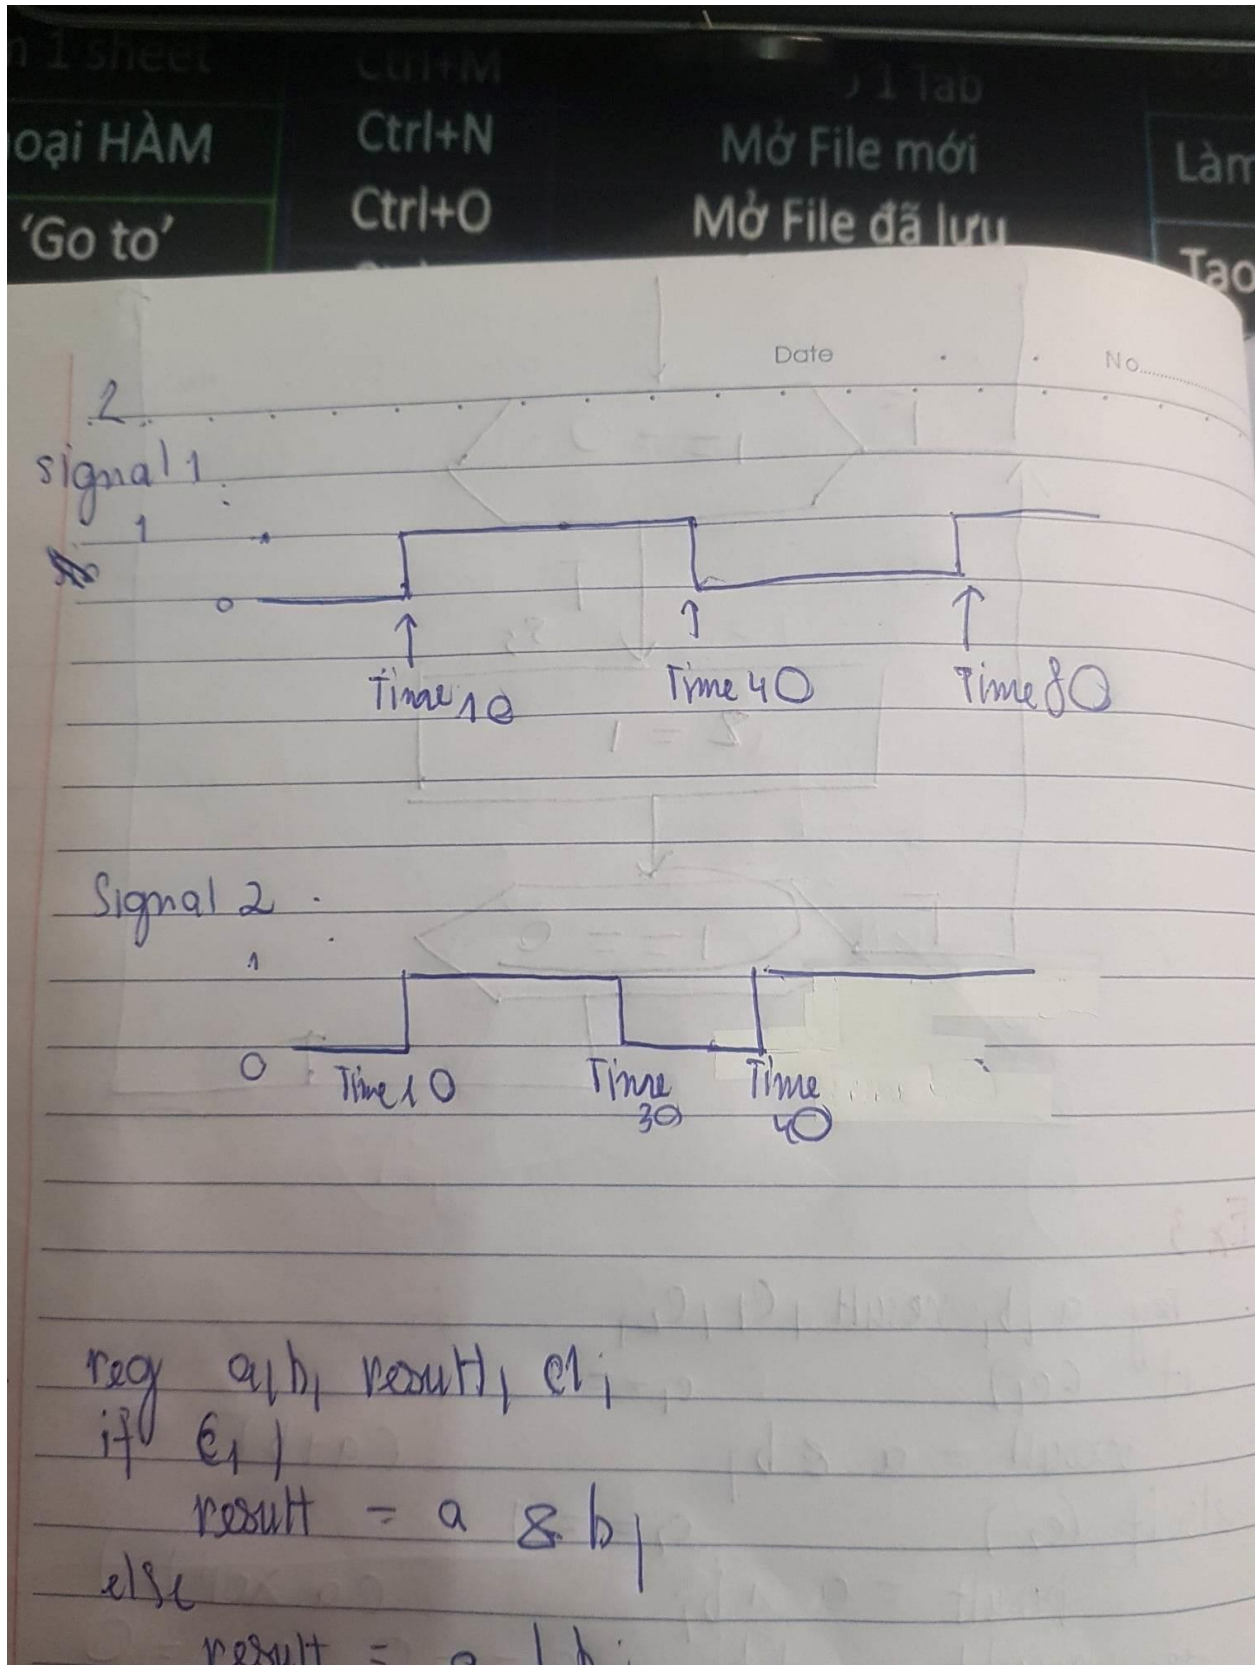 1 sheet
Ctrl+M
1 Tab
oại HÀM
Ctrl+N
Mở File mới
Làm
'Go to'
Ctrl+O
Mở File đã lưu
Tạo
Date
No
2
signal 1
1
0
Time 10
Time 40
Time 80
Signal 2
1
0
Time 10
Time 30
Time 40
reg a, b, result, c1;
if c1)
result = a & b;
else
result = a | b;